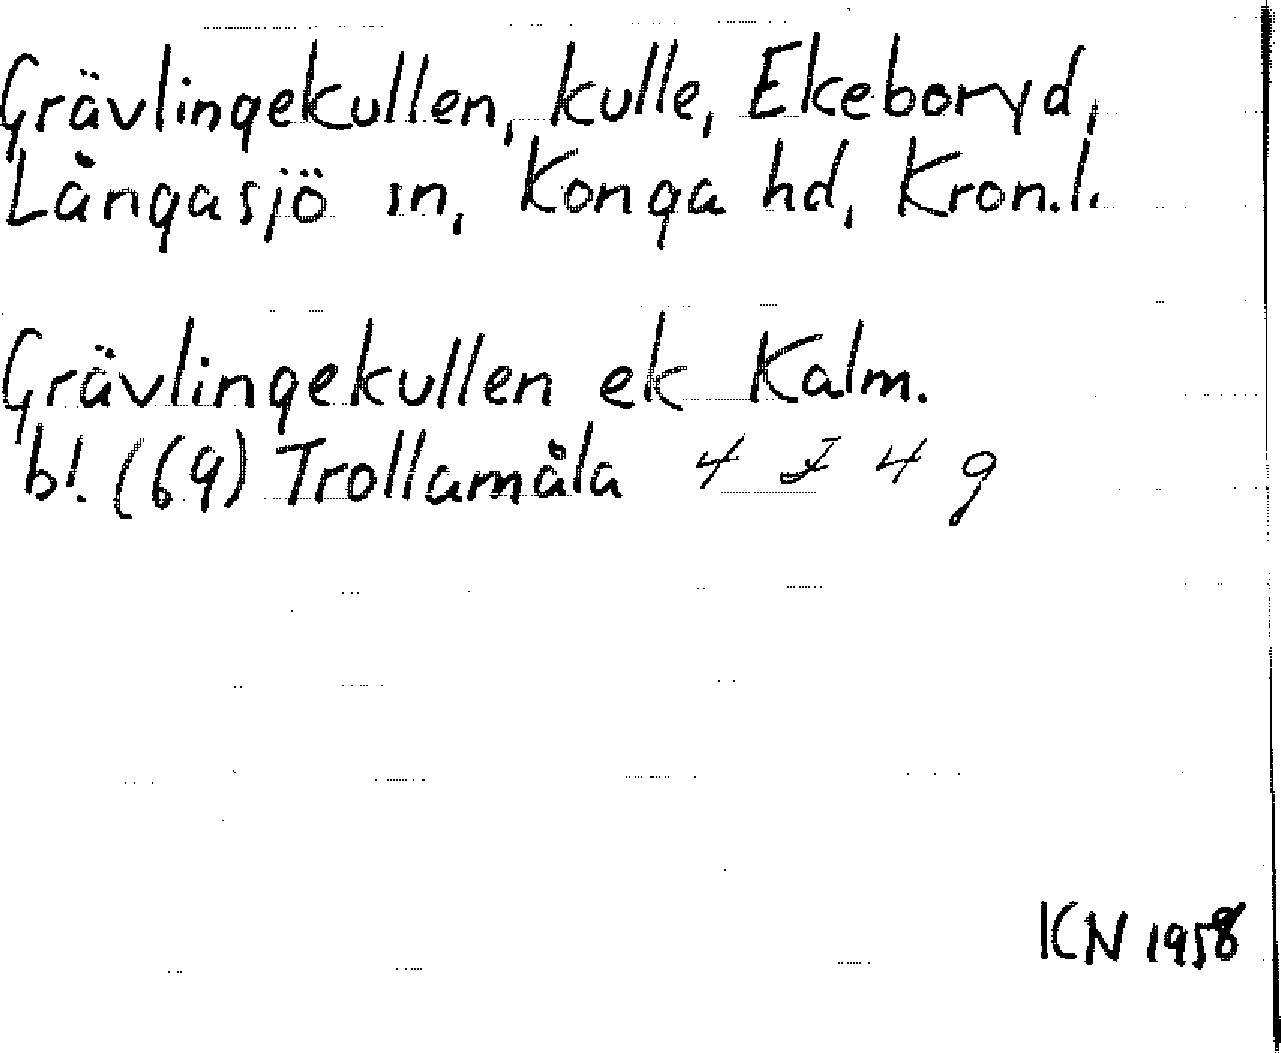 Grävlingekullen, kulle, Ekeboryd,
Långasjö sn, Konga hd, Kron.l.
Grävlingekullen ek Kalm.
bl. (69) Trollamåla 4 F 4 g
KN 1958